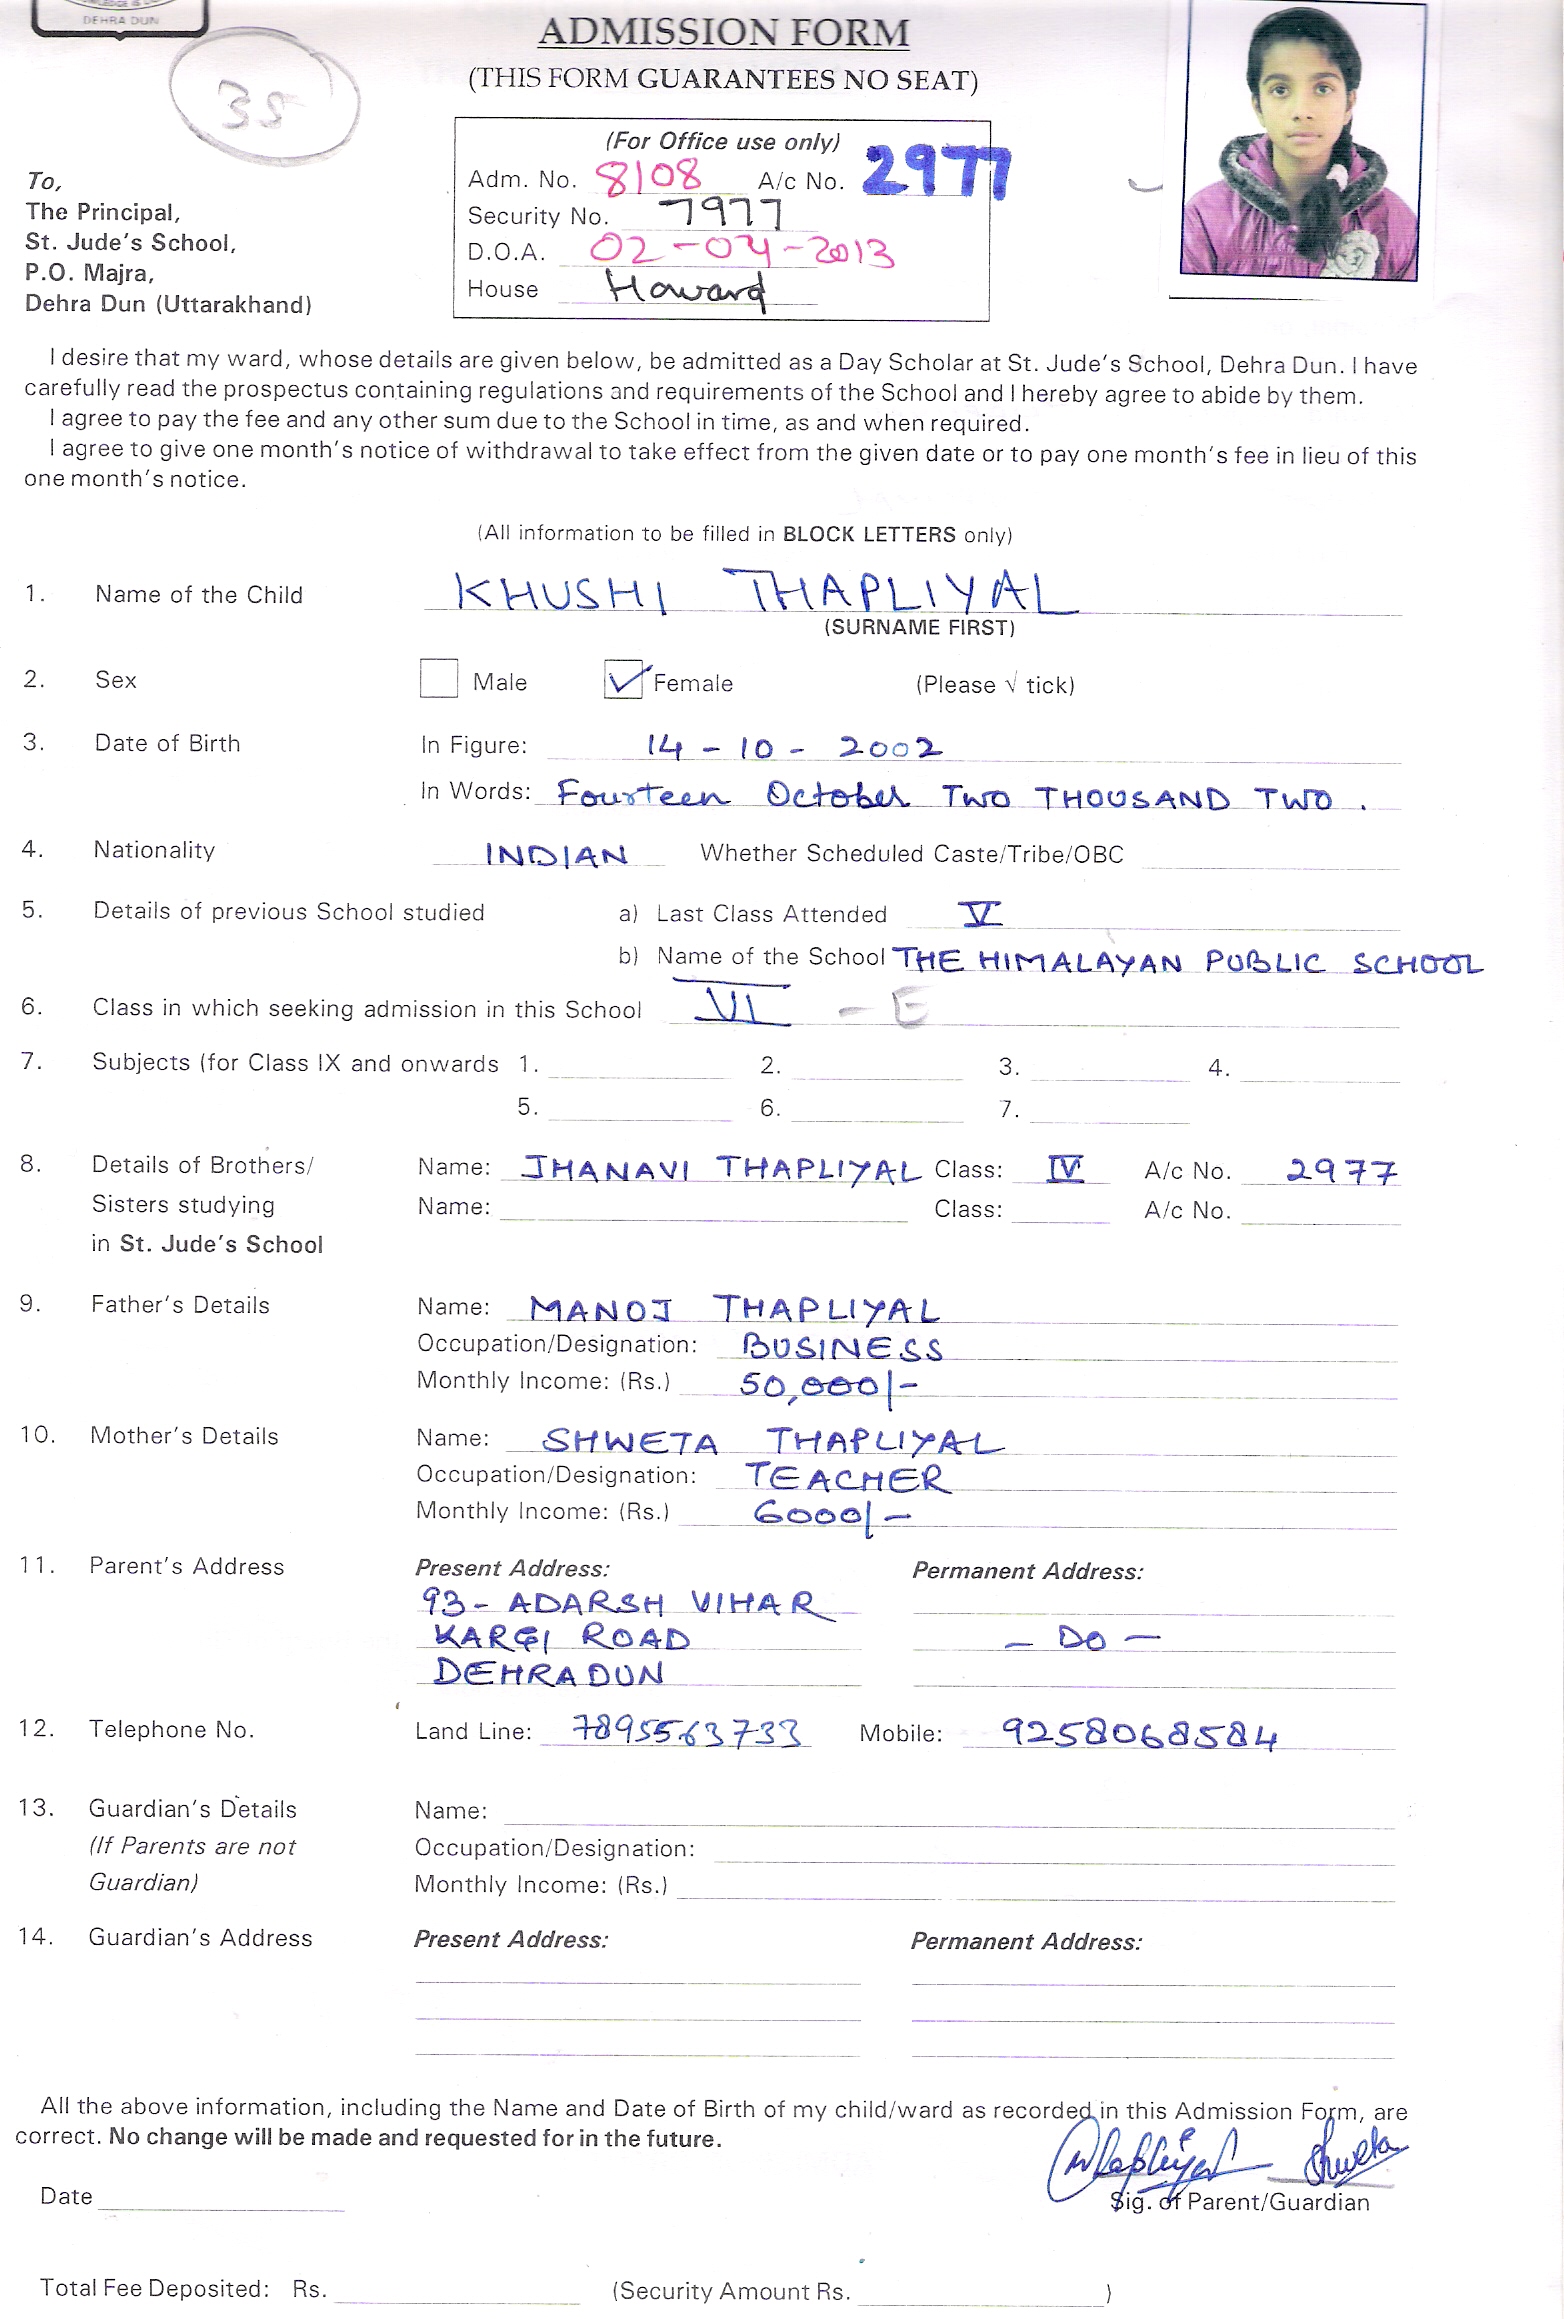 DEHRA DUN
ADMISSION FORM
(THIS FORM GUARANTEES NO SEAT)
35
(For Office use only)
Adm. No. 8108 A/c No. 2977
Security No. 7977
D.O.A. 02-04-2013
House Howard
To,
The Principal,
St. Jude's School,
P.O. Majra,
Dehra Dun (Uttarakhand)
I desire that my ward, whose details are given below, be admitted as a Day Scholar at St. Jude's School, Dehra Dun. I have
carefully read the prospectus containing regulations and requirements of the School and I hereby agree to abide by them.
I agree to pay the fee and any other sum due to the School in time, as and when required.
I agree to give one month's notice of withdrawal to take effect from the given date or to pay one month's fee in lieu of this
one month's notice.
(All information to be filled in BLOCK LETTERS only)
1. Name of the Child KHUSHI THAPLIYAL
(SURNAME FIRST)
2. Sex Male ✓ Female (Please √ tick)
3. Date of Birth In Figure: 14 - 10 - 2002
In Words: Fourteen October TWO THOUSAND TWO.
4. Nationality INDIAN Whether Scheduled Caste/Tribe/OBC
5. Details of previous School studied a) Last Class Attended V
b) Name of the School THE HIMALAYAN PUBLIC SCHOOL
6. Class in which seeking admission in this School VI - E
7. Subjects (for Class IX and onwards 1. 2. 3. 4.
5. 6. 7.
8. Details of Brothers/ Name: JHANAVI THAPLIYAL Class: IV A/c No. 2977
Sisters studying Name: Class: A/c No.
in St. Jude's School
9. Father's Details Name: MANOJ THAPLIYAL
Occupation/Designation: BUSINESS
Monthly Income: (Rs.) 50,000/-
10. Mother's Details Name: SHWETA THAPLIYAL
Occupation/Designation: TEACHER
Monthly Income: (Rs.) 6000/-
11. Parent's Address Present Address: Permanent Address:
93- ADARSH VIHAR
KARGI ROAD - DO -
DEHRADUN
12. Telephone No. Land Line: 7895563733 Mobile: 9258068584
13. Guardian's Details Name:
(If Parents are not Occupation/Designation:
Guardian) Monthly Income: (Rs.)
14. Guardian's Address Present Address: Permanent Address:
All the above information, including the Name and Date of Birth of my child/ward as recorded in this Admission Form, are
correct. No change will be made and requested for in the future.
Thapliyal Shweta
Date Sig. of Parent/Guardian
Total Fee Deposited: Rs. (Security Amount Rs. )